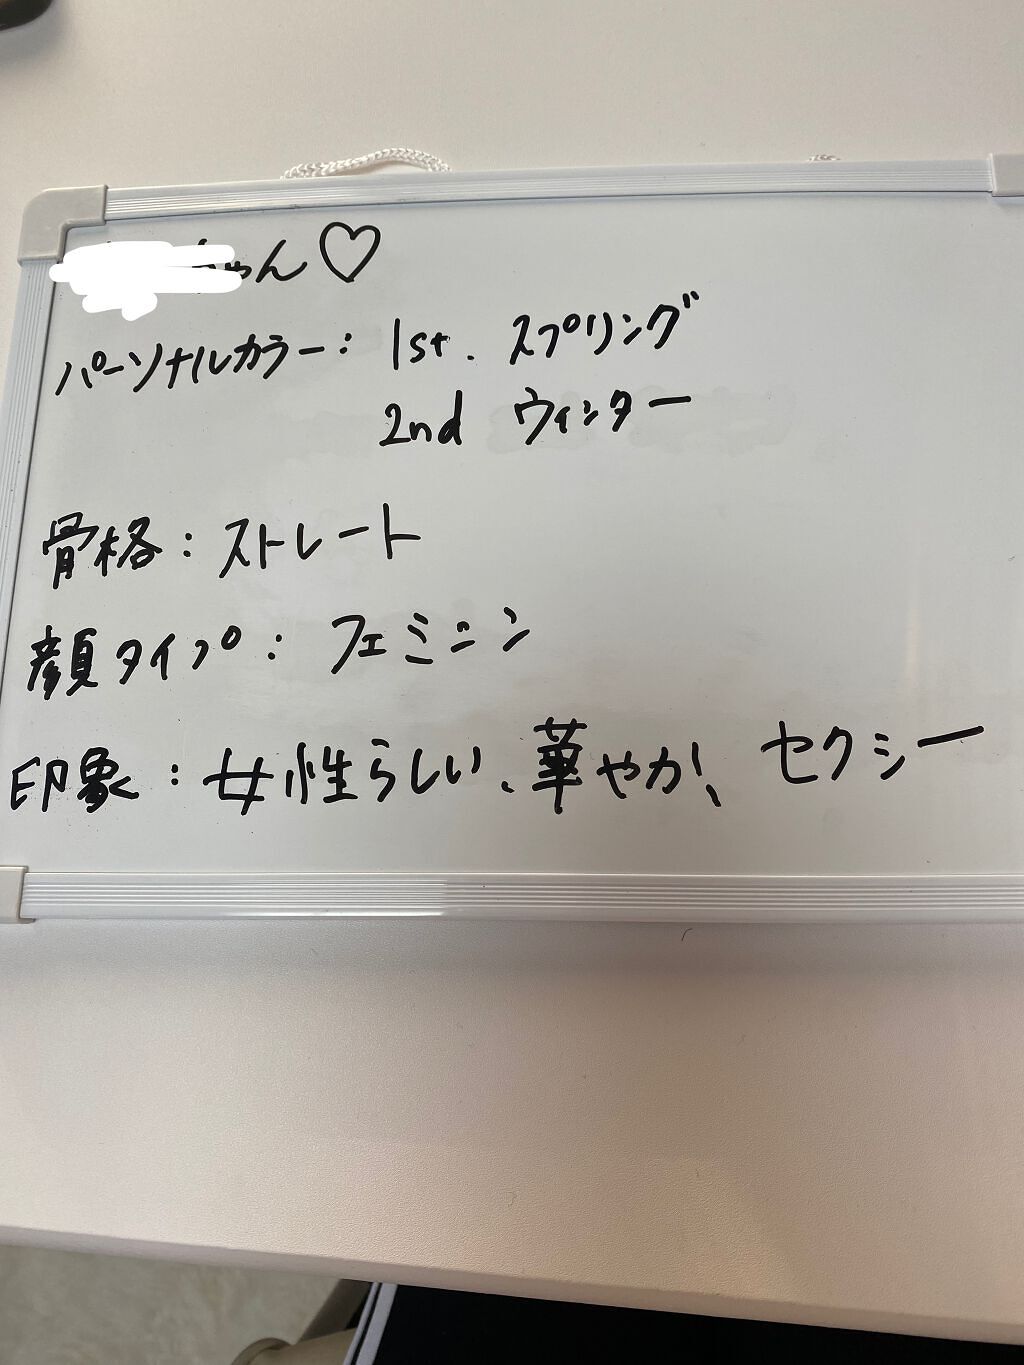 ちゃん♡
パーソナルカラー: 1st. スプリング
2nd ウィンター
骨格: ストレート
顔タイプ: フェミニン
印象: 女性らしい、華やか、セクシー